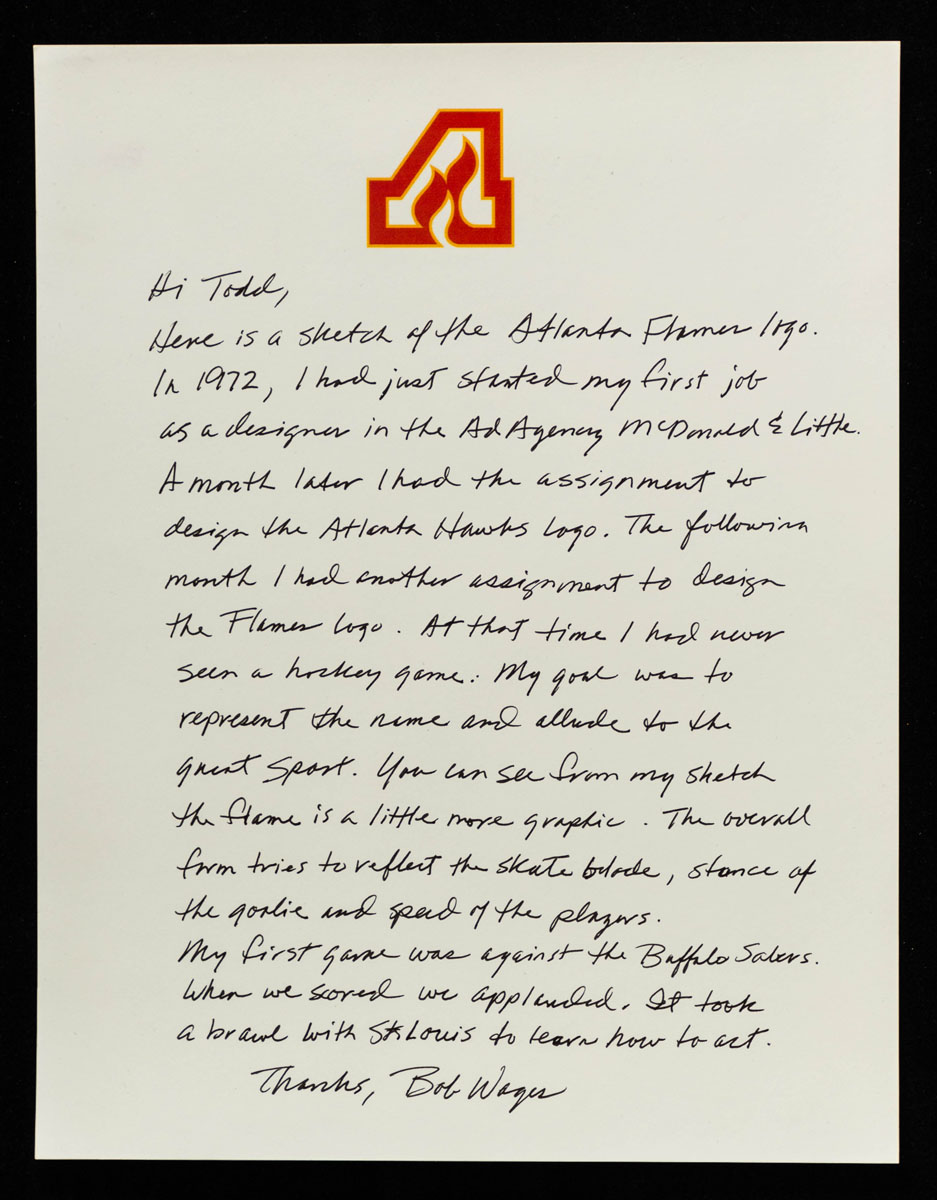 Hi Todd,
Here is a sketch of the Atlanta Flames logo.
In 1972, I had just started my first job
as a designer in the Ad Agency McDonald & Little.
A month later I had the assignment to
design the Atlanta Hawks logo. The following
month I had another assignment to design
the Flames logo. At that time I had never
seen a hockey game. My goal was to
represent the name and allude to the
great sport. You can see from my sketch
the flame is a little more graphic. The overall
form tries to reflect the skate blade, stance of
the goalie and speed of the players.
My first game was against the Buffalo Sabers.
When we scored we applauded. It took
a brawl with St. Louis to learn how to act.
Thanks, Bob Wages